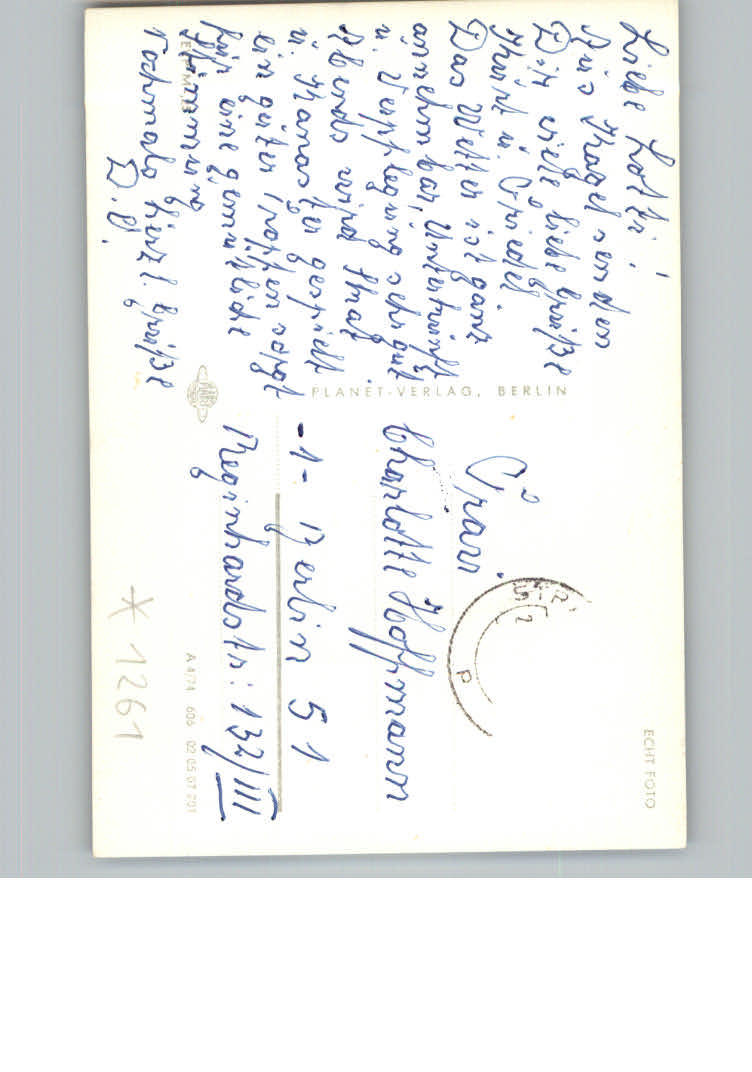 Liebe Lotti!
Aus Kagel senden
Dir viele liebe Grüße
Kurt u. Friedel
Das Wetter ist ganz
annehmbar, Unterkunft
u. Verpflegung sehr gut.
Abends wird Skat
u. Kanaster gespielt
ein guter Tropfen sorgt
für eine gemütliche
Stimmung
Nochmals herzl. Grüße
D. O.
PLANET-VERLAG, BERLIN
Frau
Charlotte Hoffmann
-1- Berlin 51
Reginhardstr: 132/III
ECHT FOTO
A 4/74 606 02 05 07 201
* 1261